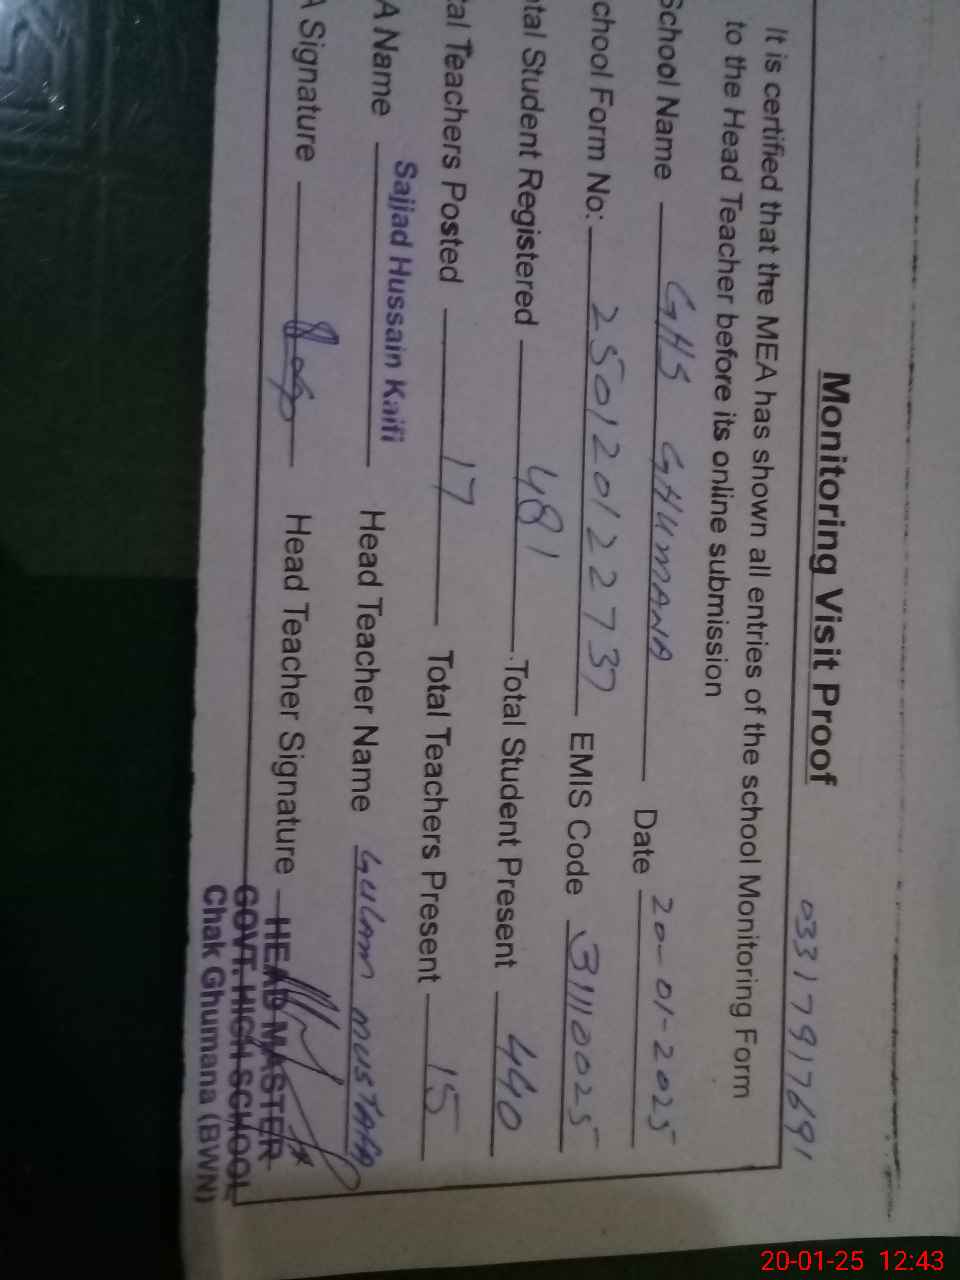 Monitoring Visit Proof 03317917691
It is certified that the MEA has shown all entries of the school Monitoring Form
to the Head Teacher before its online submission
School Name GHS GHUMANA Date 20-01-2025
chool Form No: 250120122737 EMIS Code 31110025
tal Student Registered 481 Total Student Present 440
tal Teachers Posted 17 Total Teachers Present 15
A Name Sajjad Hussain Kaifi Head Teacher Name Gulam Mustafa
A Signature Head Teacher Signature
HEAD MASTER
GOVT. HIGH SCHOOL
Chak Ghumana (BWN)
20-01-25 12:43